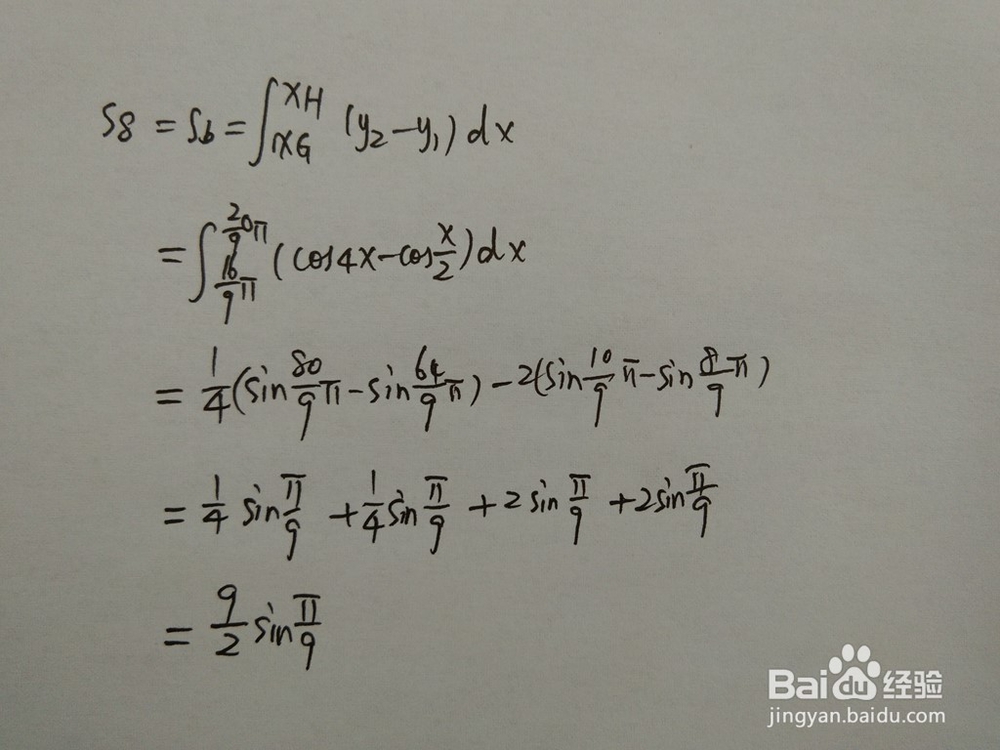 S8 = S6 = ∫_{XG}^{XH} (y₂-y₁) dx
= ∫_{16/9 π}^{20/9 π} (cos4x-cos x/2) dx
= 1/4 (sin 80/9 π - sin 64/9 π) - 2(sin 10/9 π - sin 8/9 π)
= 1/4 sin π/9 + 1/4 sin π/9 + 2 sin π/9 + 2 sin π/9
= 9/2 sin π/9
Baidu 经验
jingyan.baidu.com